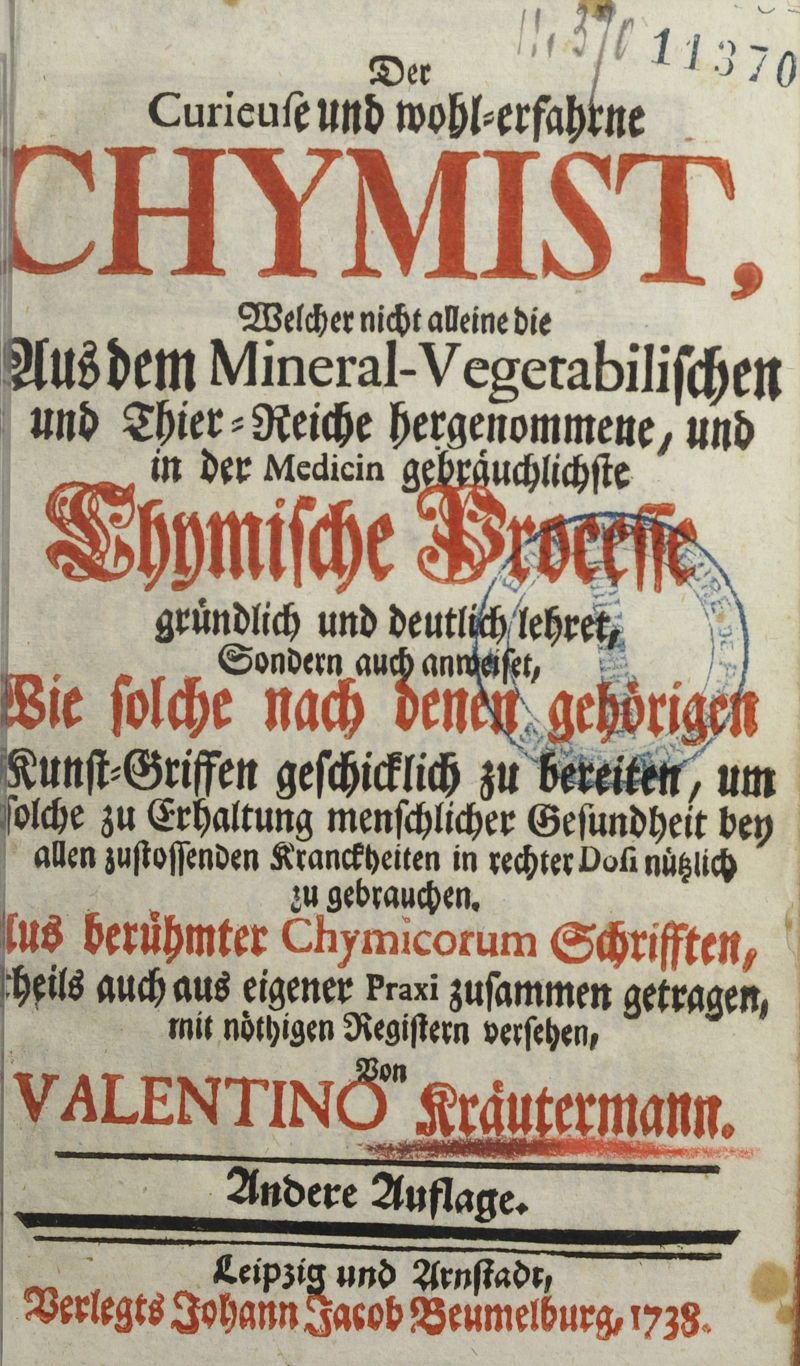 11,370 11370
Der
Curieuse und wohl-erfahrne
CHYMIST,
Welcher nicht alleine die
Aus dem Mineral-Vegetabilischen
und Thier-Reiche hergenommene, und
in der Medicin gebräuchlichste
Chymische Processe
gründlich und deutlich lehret,
Sondern auch anweiset,
Wie solche nach denen gehörigen
Kunst-Griffen geschicklich zu bereiten, um
solche zu Erhaltung menschlicher Gesundheit bey
allen zustossenden Kranckheiten in rechter Dosi nützlich
zu gebrauchen.
Aus berühmter Chymicorum Schrifften,
theils auch aus eigener Praxi zusammen getragen,
mit nöthigen Registern versehen,
Von
VALENTINO Kräutermann.
Andere Auflage.
Leipzig und Arnstadt,
Verlegts Johann Jacob Beumelburg, 1738.